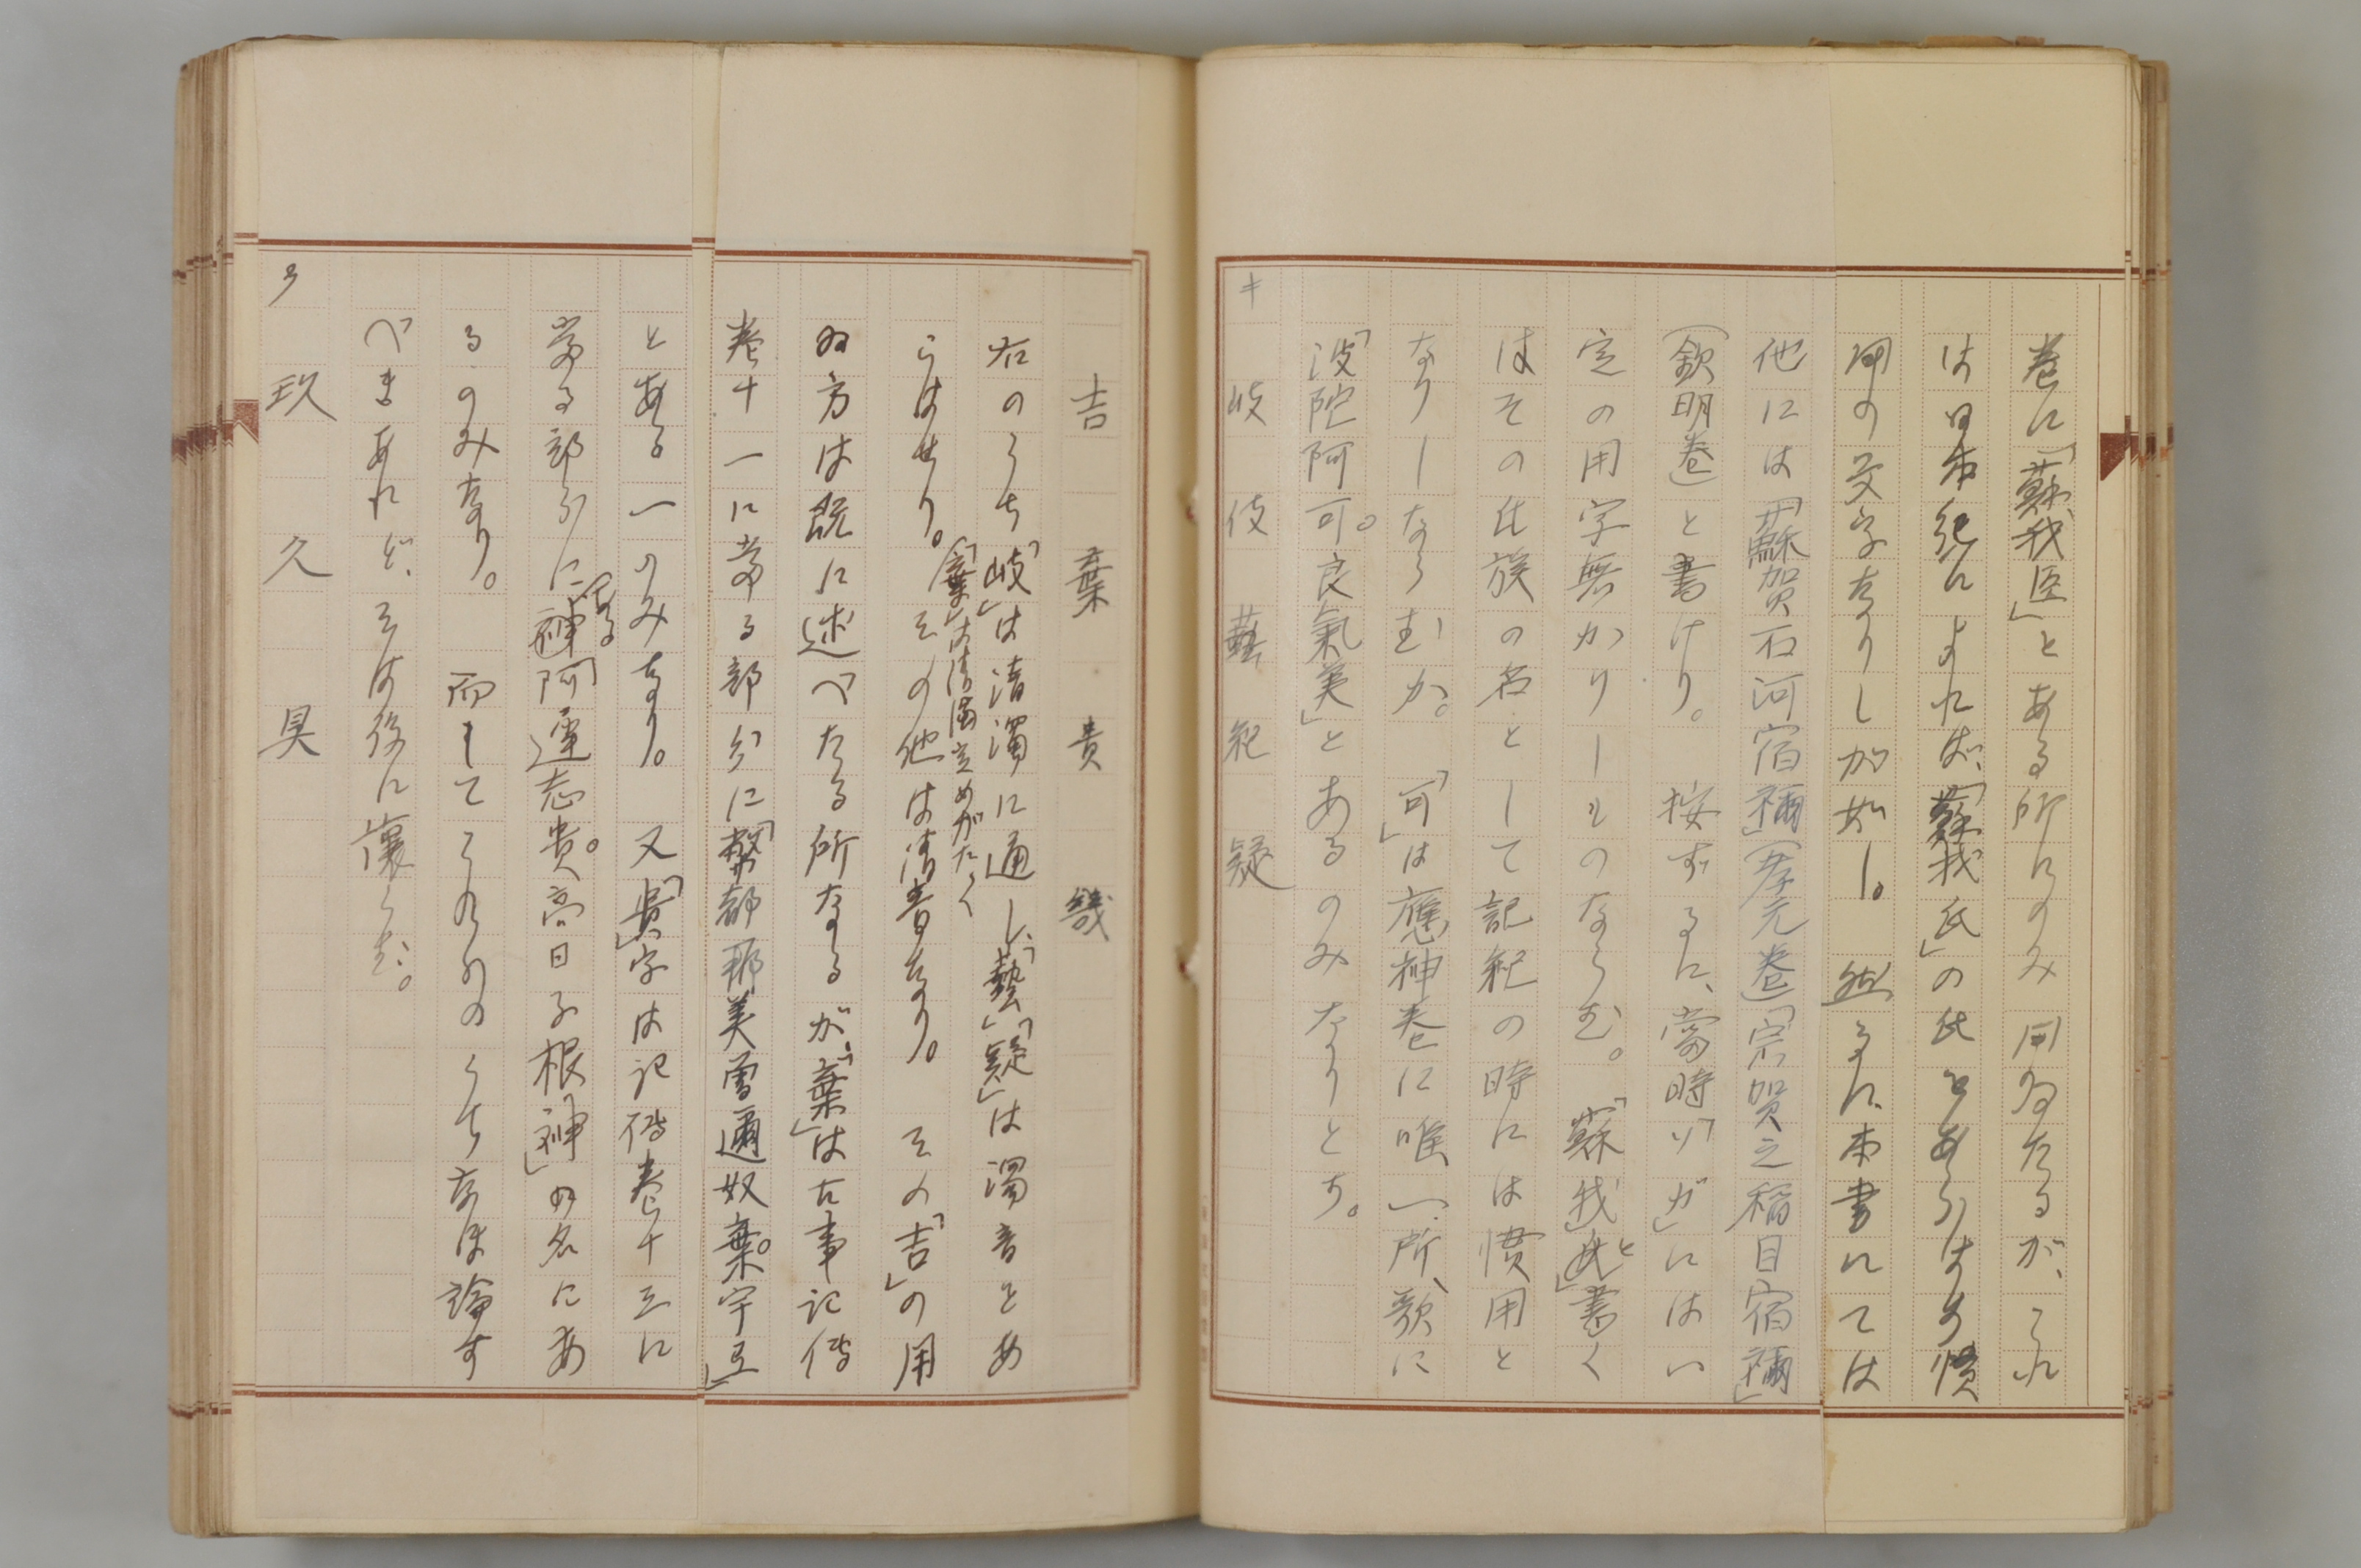 巻に「蘇我臣」とある所にのみ用ゐたるが、これ
は日本紀によれば、「蘇我氏」の氏をあらはす慣
用の文字なりしが如し。然るに、本書にては
他には「蘇賀石河宿禰」(孝元巻)「宗賀之稲目宿禰」
(欽明巻)と書けり。按ずるに、當時「ソガ」にはい
定の用字無かりしものならむ。「蘇我」と書く
はその氏族の名として記紀の時には慣用と
なりしならむか。「可」は應神巻に唯一所、歌に
「波陀阿可。良氣美」とあるのみなりとす。
キ 岐 伎 藝 紀 疑
吉 棄 貴 幾
右のうち「岐」は清濁に通し、「藝」「疑」は濁音をあ
らはせり。その他は清音なり。その「吉」の用
「棄」は清濁定めがたく
ゐ方は既に述べたる所なるが、「棄」は古事記傳
巻十一に當る部分に「幣都那美曽邇奴棄。宇弖」
とある一のみなり。又「貴」字は記傳巻十三に
當る部分に「阿遅志貴。高日子根神」の名にあ
なる神
るのみなり。而してこれらのうちなほ論す
べきあれど、そは後に讓らむ。
ク 玖 久 具